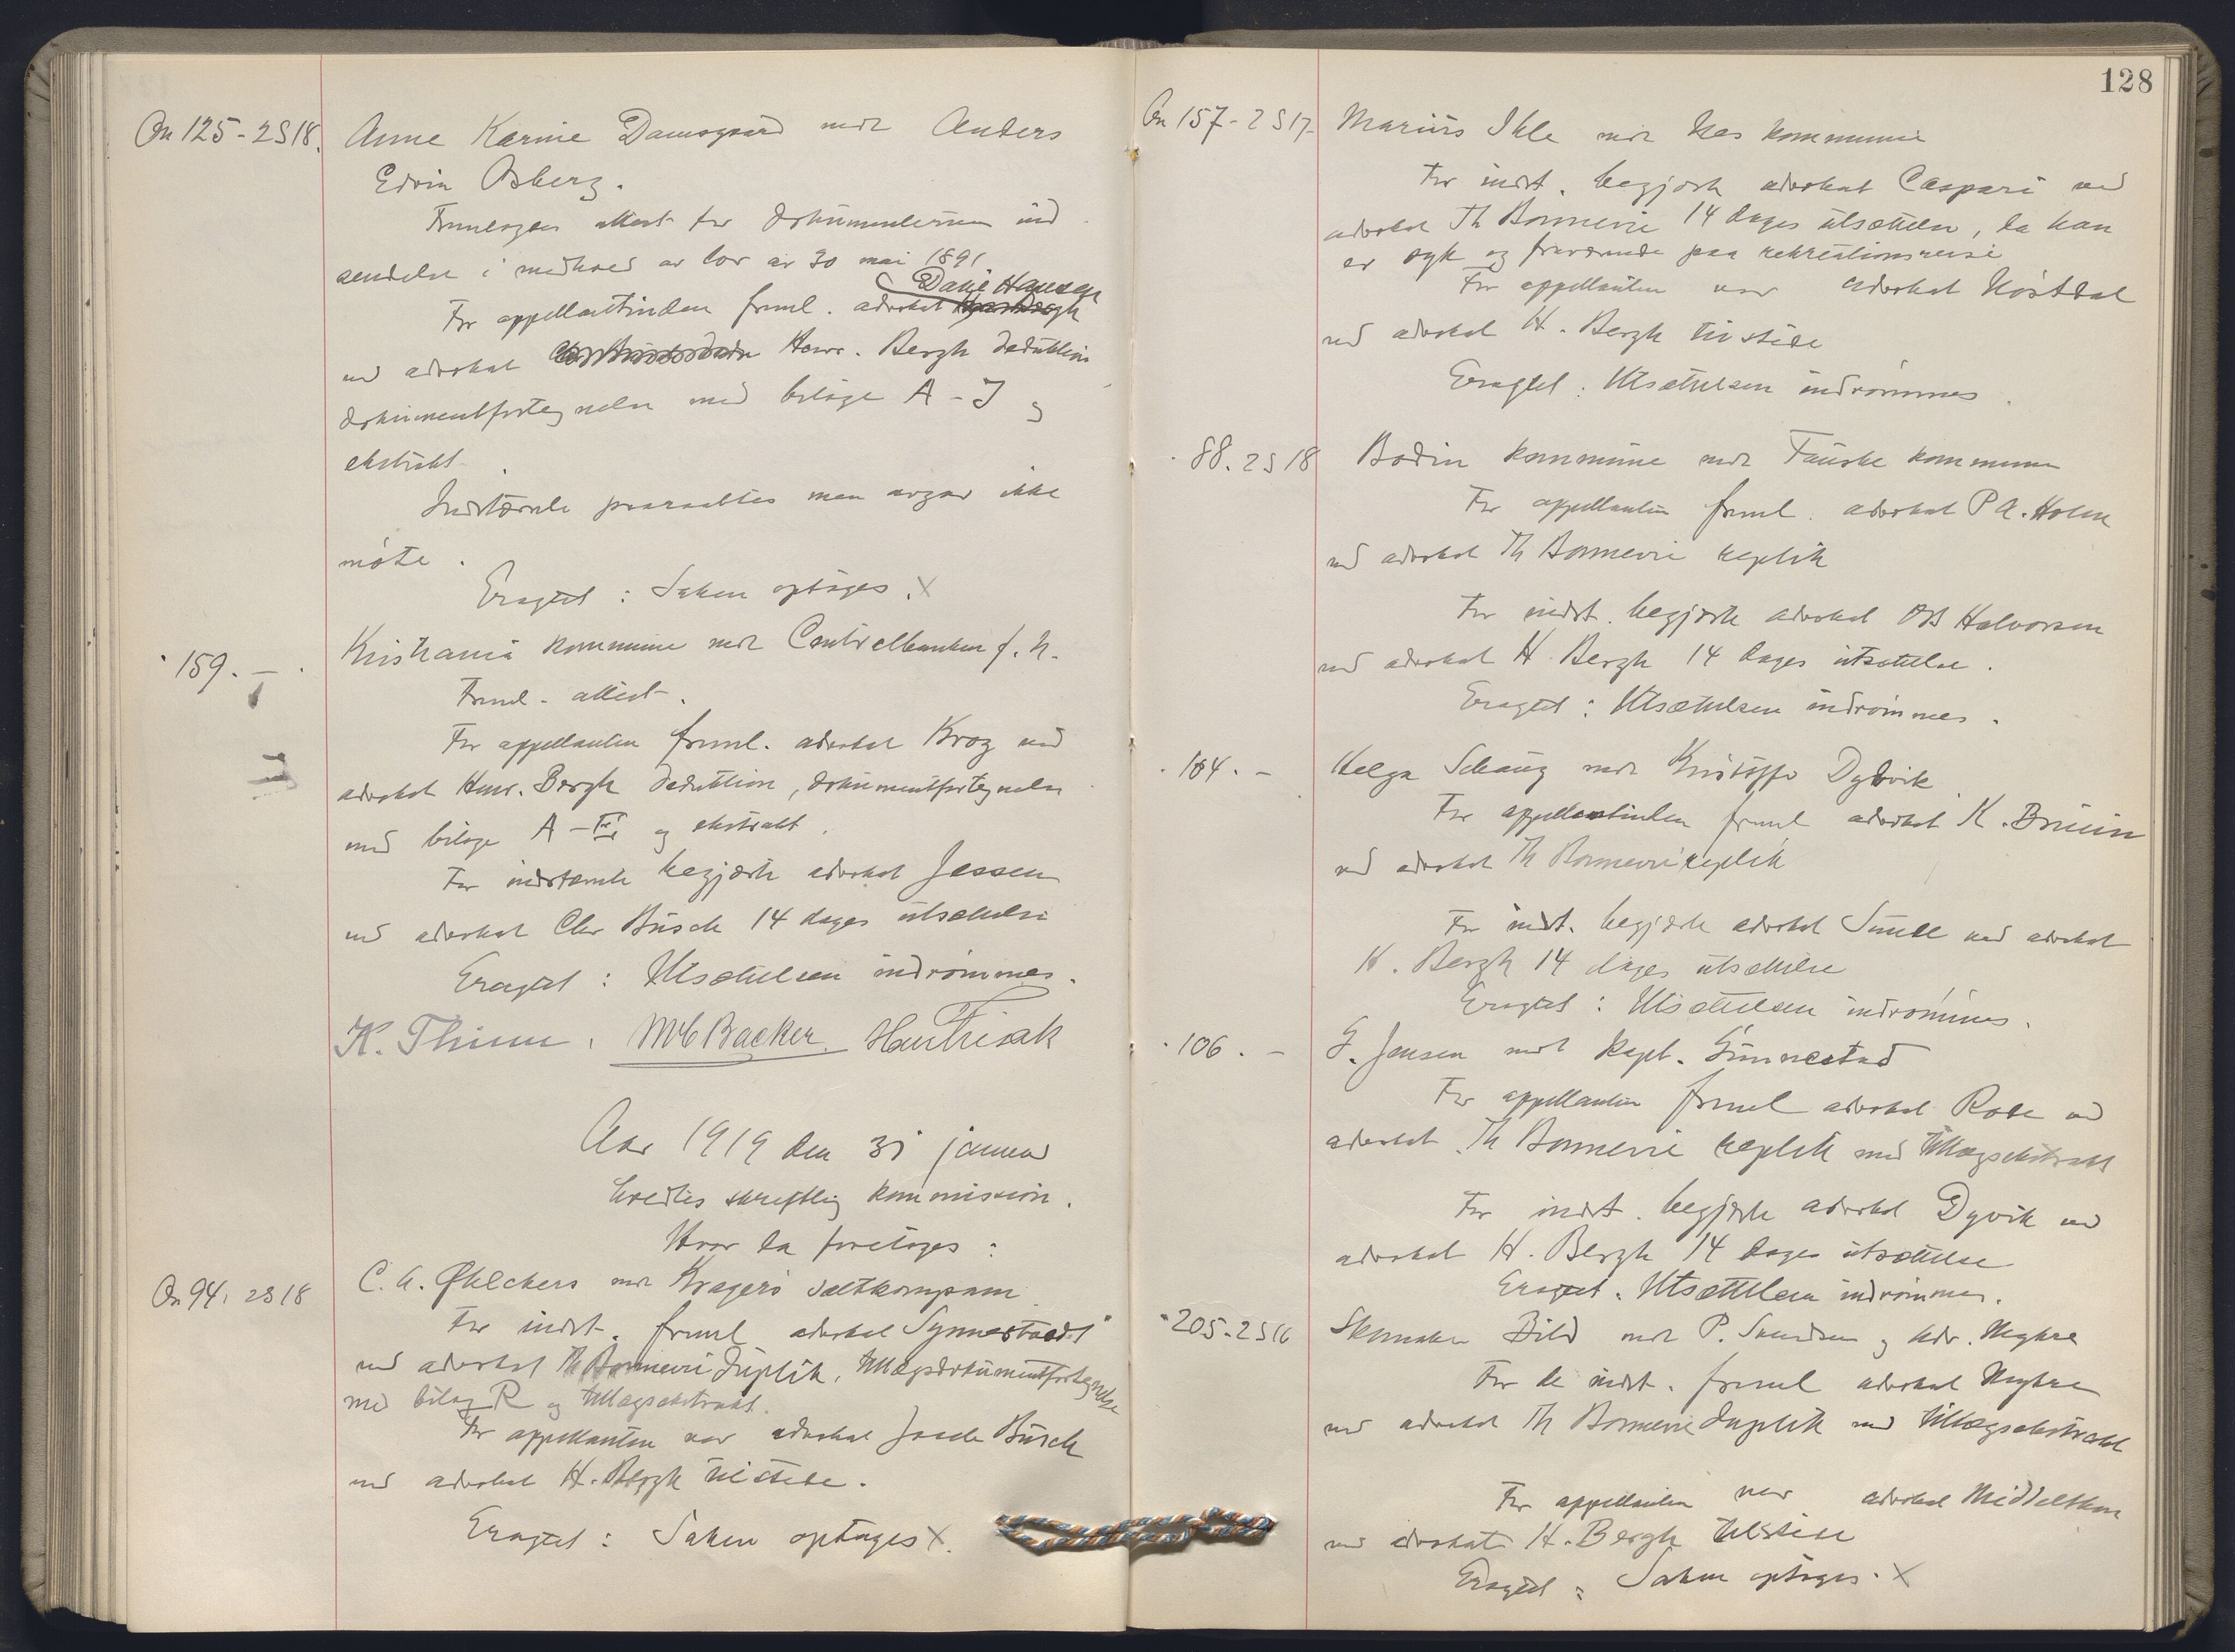 On 125-2S18. Anne Karine Damsgaard mot Anders
Edvin Osberg.
Fremlagdes attest for dokumenternes ind
sendelse i medhold av lov av 30 mai 1891
Dane Hansen
For appellantinden freml. advokat
ved advokat Henr. Bergh deduktion
dokumentfortegnelse med bilage A - J og
ekstrakt.
Indstævnte paaraabtes men avgav ikke
møte.
Eragtet : Saken optages. X
" 159. — . Kristiania kommune mot Centralbanken f. N.
Freml. attest.
For appellanten freml. advokat Krog ved
advokat Henr. Bergh deduktion, dokumentfortegnelse
med bilage A - og ekstrakt.
For indstævnte begjærte advokat Jessen
ved advokat Chr Busch 14 dages utsættelse
Eragtet : Utsættelsen indrømmes.
K. Thinn. M C Backer.
Aar 1919 den 31 januar
holdtes skriftlig kommission.
Hvor da foretages :
On 94. 2S18 C. A. Øhlckers mot Kragerø saltkompani
For indst. freml advokat Synnestvedt
ved advokat Th Bonnevie duplik, tillægsdokumentfortegnelse
med bilag R og tillægsekstrakt.
For appellanten var advokat Busch
ved advokat H. Bergh tilstede.
Eragtet : Saken optages X.
128
On 157-2S17- Marius Ihle mot Nes kommune
For indst. begjærte advokat Caspari ved
advokat Th Bonnevie 14 dages utsættelse, da han
er syk og fraværende paa rekreationsreise
For appellanten var advokat
ved advokat H. Bergh tilstede
Eragtet : Utsættelsen indrømmes.
" 88. 2S18 Bodin kommune mot Fauske kommune
For appellanten freml. advokat P A. Holm
ved advokat Th Bonnevie replik
For indst. begjærte advokat O B Halvorsen
ved advokat H. Bergh 14 dages utsættelse.
Eragtet : Utsættelsen indrømmes.
" 104. — Helga Schaug mot Kristoffer Dybvik
For appellantinden freml advokat K. Bruun
ved advokat Th Bonnevie replik
For indst. begjærte advokat Sunde ved advokat
H. Bergh 14 dages utsættelse
Eragtet : Utsættelsen indrømmes.
" 106. — G. Jensen mot kapt. Gunnestad
For appellanten freml advokat Rode ved
advokat Th Bonnevie replik med tillægsekstrakt
For indst. begjærte advokat Dyvik ved
advokat H. Bergh 14 dages utsættelse
Eragtet. Utsættelsen indrømmes.
" 205-2S16 Skomaker Bild mot P. Svendsen og Adv. Myhre
For de indst. freml advokat Myhre
ved advokat Th Bonnevie duplik med tillægsekstrakt
For appellanten var advokat Middelthon
ved advokat H. Bergh tilstede
Eragtet : Saken optages. X